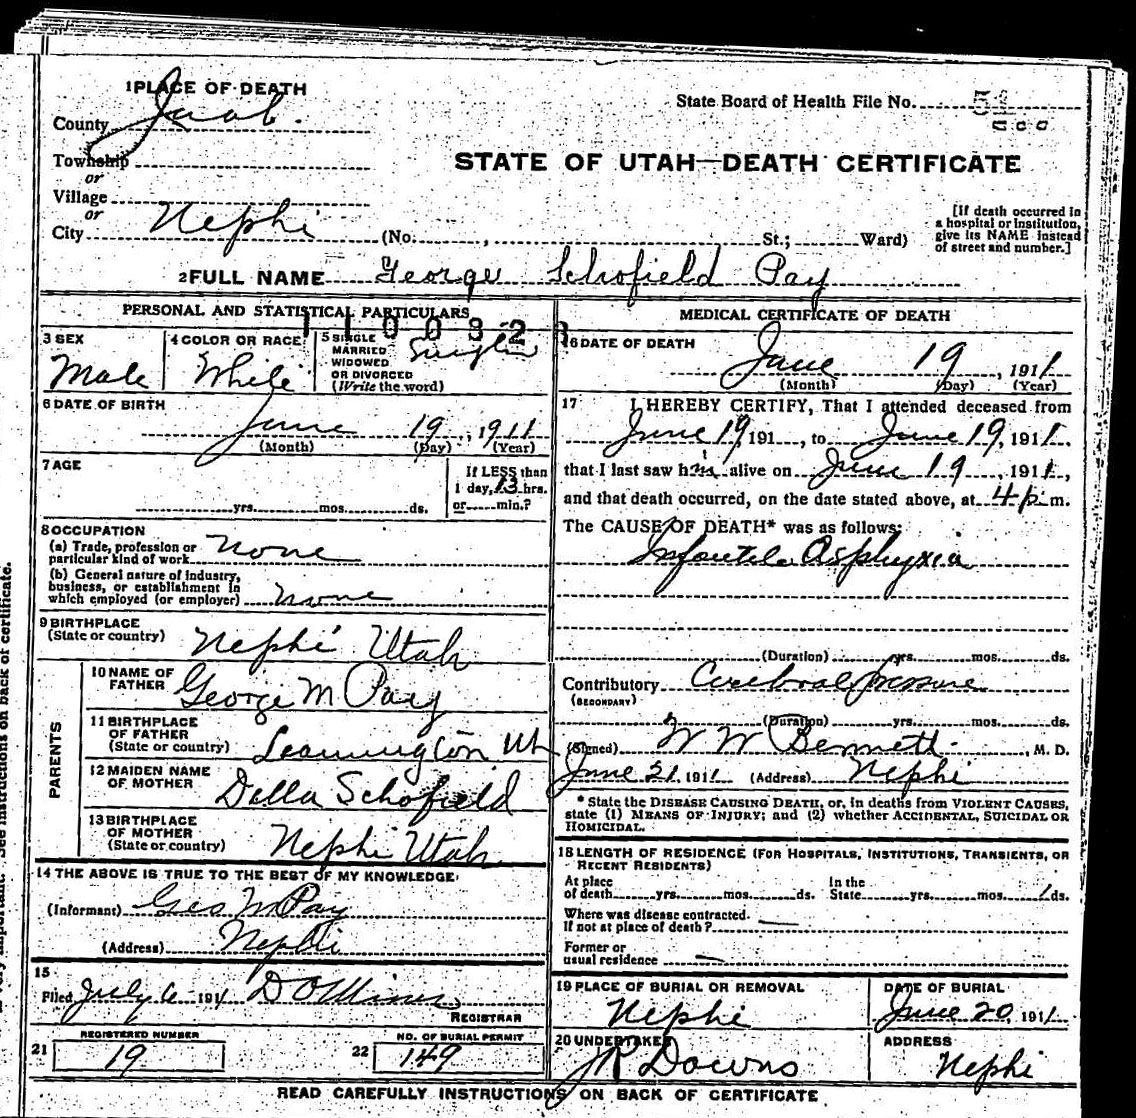 1 PLACE OF DEATH
County Juab.
State Board of Health File No.
Township
or
STATE OF UTAH—DEATH CERTIFICATE
Village
or
City Nephi (No. , St.; Ward)
[If death occurred in
a hospital or institution,
give its NAME instead
of street and number.]
2 FULL NAME George Schofield Pay
PERSONAL AND STATISTICAL PARTICULARS
3 SEX
Male
4 COLOR OR RACE
White
5 SINGLE
MARRIED
WIDOWED
OR DIVORCED
(Write the word)
Single
6 DATE OF BIRTH
June 19, 1911
(Month) (Day) (Year)
7 AGE
yrs. mos. ds.
If LESS than
1 day, 13 hrs.
or min.?
8 OCCUPATION
(a) Trade, profession or
particular kind of work none
(b) General nature of industry,
business, or establishment in
which employed (or employer) none
9 BIRTHPLACE
(State or country) Nephi Utah
PARENTS
10 NAME OF
FATHER George M Pay
11 BIRTHPLACE
OF FATHER
(State or country) Leamington Ut
12 MAIDEN NAME
OF MOTHER Della Schofield
13 BIRTHPLACE
OF MOTHER
(State or country) Nephi Utah
14 THE ABOVE IS TRUE TO THE BEST OF MY KNOWLEDGE
(Informant) Geo M Pay
(Address) Nephi
15
Filed July 6 191
REGISTRAR
REGISTERED NUMBER
21 19
NO. OF BURIAL PERMIT
22 149
MEDICAL CERTIFICATE OF DEATH
16 DATE OF DEATH
June 19, 1911
(Month) (Day) (Year)
17 I HEREBY CERTIFY, That I attended deceased from
June 19 191 , to June 19, 1911,
that I last saw him alive on June 19, 1911,
and that death occurred, on the date stated above, at 4 p. m.
The CAUSE OF DEATH* was as follows:
Infantile Asphyxia
(Duration) yrs. mos. ds.
Contributory Cerebral pressure
(SECONDARY)
(Duration) yrs. mos. ds.
(Signed) W W Bennett M. D.
June 21, 1911 (Address) Nephi
* State the DISEASE CAUSING DEATH, or, in deaths from VIOLENT CAUSES,
state (1) MEANS OF INJURY; and (2) whether ACCIDENTAL, SUICIDAL OR
HOMICIDAL.
18 LENGTH OF RESIDENCE (FOR HOSPITALS, INSTITUTIONS, TRANSIENTS, OR
RECENT RESIDENTS)
At place In the
of death yrs. mos. ds. State yrs. mos. 1 ds.
Where was disease contracted.
If not at place of death?
Former or
usual residence
19 PLACE OF BURIAL OR REMOVAL
Nephi
DATE OF BURIAL
June 20 1911
20 UNDERTAKER
J R Downs
ADDRESS
Nephi
READ CAREFULLY INSTRUCTIONS ON BACK OF CERTIFICATE
See instructions on back of certificate.